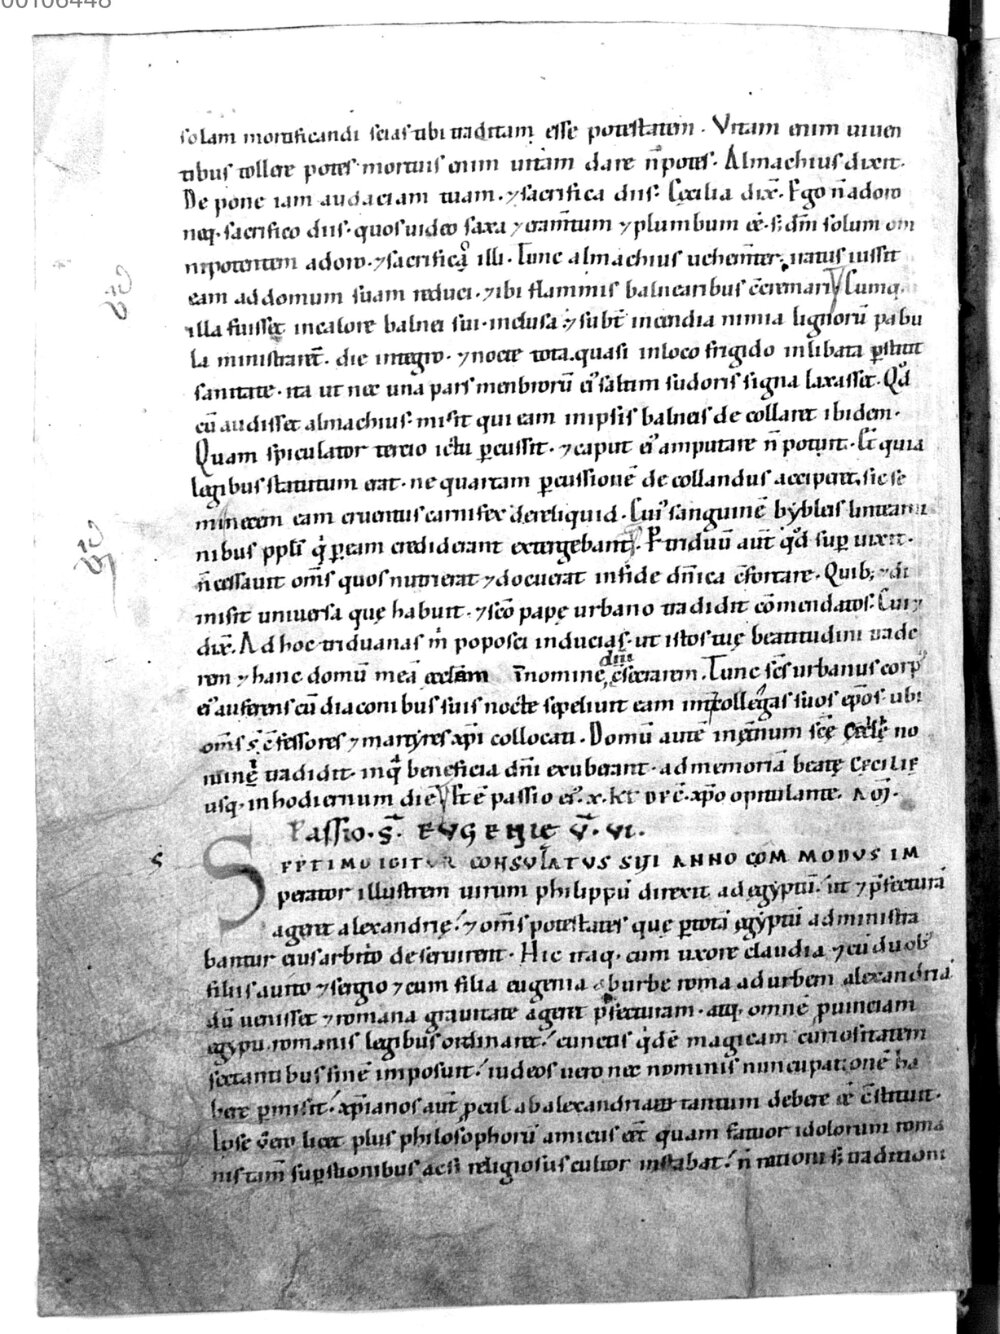 00106448
solam mortificandi scias tibi traditam esse potestatem. Vitam enim uiuen
tibus tollere potes· mortuis enim uitam dare n̄ potes. Almachius dixit.
De pone iam audaciam tuam· ⁊ sacrifica diis. Cecilia dix̄. Ego n̄ adoro
neq· sacrifico diis· quos uideo saxa ⁊ eram̄tum ⁊ plumbum eē· s; dm̄ solum om
nipotentem adoro· ⁊ sacrificā illi. Tunc almachius uehem̄ter iratus iussit
eam ad domum suam reduci· ⁊ ibi flammis balnearibus c̄cremari. Cumq.
illa fuisset in calore balnei sui· inclusa ⁊ subt̄ incendia nimia lignorū pabu
la ministrarent̄· die integro· ⁊ nocte tota· quasi in loco frigido inlibata p̄stitit
sanitate· ita ut nec una pars menbrorū eiꝰ saltim sudoris signa laxasset· Qd̄
cū audisset almachius· misit qui eam in ipsis balneis de collaret ibidem.
Quam spiculator tercio ictu p̄cussit· ⁊ caput eiꝰ amputare n̄ potuit· Et quia
legibus statutum erat· ne quartam p̄cussionē de collandus acciperet, sic se
minecem eam cruentus carnifex dereliquid. Cuiꝰ sanguinē bybleis linteami
nibus ppl̄i q̇ p̄ eam crediderant extergebant. P̄ triduū aut̄ qd̄ sup̄ uixit·
n̄ cessauit om̄s quos nutrierat ⁊ docuerat in fide dn̄ica c̄fortare. Quib; ⁊ di
misit uniuersa quę habuit· ⁊ sc̄o papę urbano tradidit cōmendatos. Cui ⁊
dix̄. Ad hoc triduanas m̄ poposci inducias· ut istos tuę beatitudini trade
rem ⁊ hanc domū meā ecclām ī nomine dn̄i c̄secrarem. Tunc sc̄s urbanus corpꝰ
eiꝰ auferens cū diaconibus suis nocte sepeliuit eam int̄ collegas suos ep̄os· ubi
om̄s s̄ c̄fessores ⁊ martyres xp̄i collocati. Domū autē in ęt̄num scē Cecilię no
minē tradidit· in q̄ beneficia dn̄i exuberant· ad memoriā beatę Cecilię
usq· in hodiernum diē. Est ē passio eiꝰ· x· kl̄ dec̄· xp̄o opitulante. Am̄.
Passio· S̄. Eugenie V̄· VI.
s
Septimo igitur consulatus sui anno commodus im
perator illustrem uirum philippū direxit ad egyptū· ut ⁊ p̄fecturā
ageret alexandrię· ⁊ om̄s potestates quę p̄ totā egyptū administra
bantur eius arbitrio deseruirent. Hic itaq· cum uxore claudia ⁊ cū duobꝰ
filiis auito ⁊ sergio ⁊ cum filia eugenia ab urbe roma ad urbem alexandriā
dū uenisset ⁊ romana grauitate ageret p̄fecturam· atq· omnē p̄uinciam
egypti romanis legibus ordinaret· cunctis q̇dē magicam curiositatem
sectantibus finē imposuit· iudeos uero nec nominis nuncupationē ha
bere p̄misit· xp̄ianos aut̄ p̄cul ab alexandria tantum debere eē c̄stituit·
Ipse v̄o licet plus philosophorū amicus eēt quam fautor idolorum roma
nis tam̄ sup̄stitionibus acsi religiosus cultor instabat· n̄ rationi s; traditioni